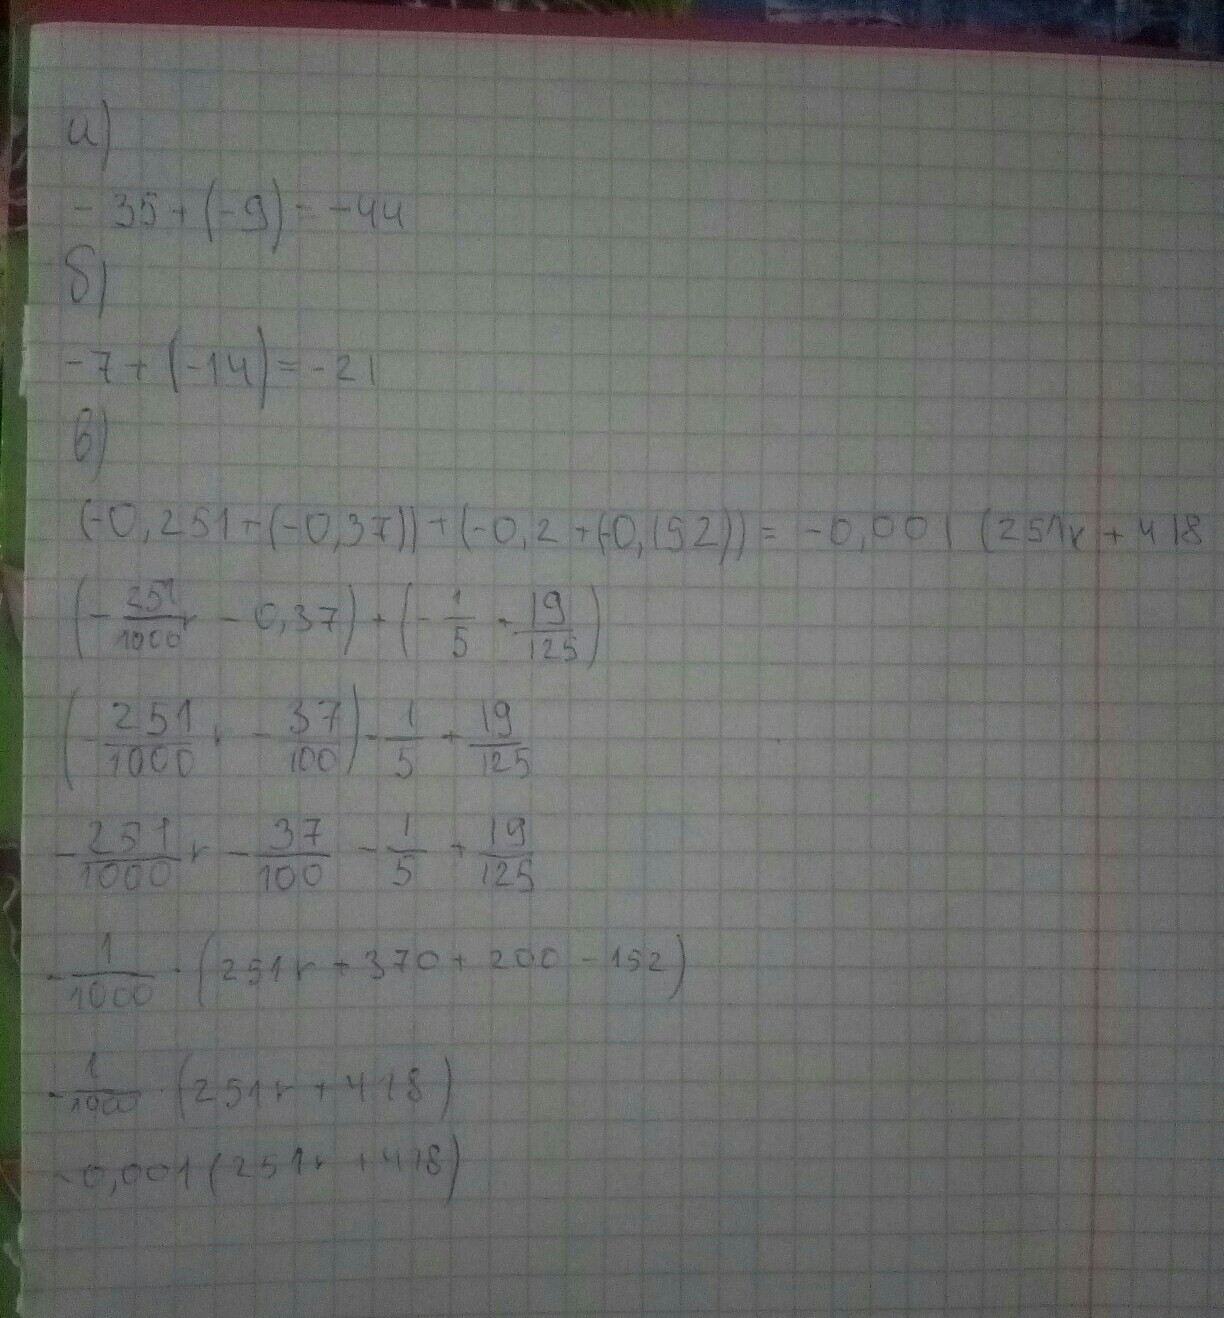 а)
- 35 + (-9) = -44
б)
-7 + (-14) = -21
в)
(-0,251 + (-0,37)) + (-0,2 + (-0,152)) = -0,001 (251r + 418
(- 251/1000 r - 0,37) + (- 1/5 + 19/125)
(- 251/1000 r - 37/100) - 1/5 + 19/125
- 251/1000 r - 37/100 - 1/5 + 19/125
- 1/1000 · (251r + 370 + 200 - 152)
- 1/1000 · (251r + 418)
- 0,001 (251r + 418)